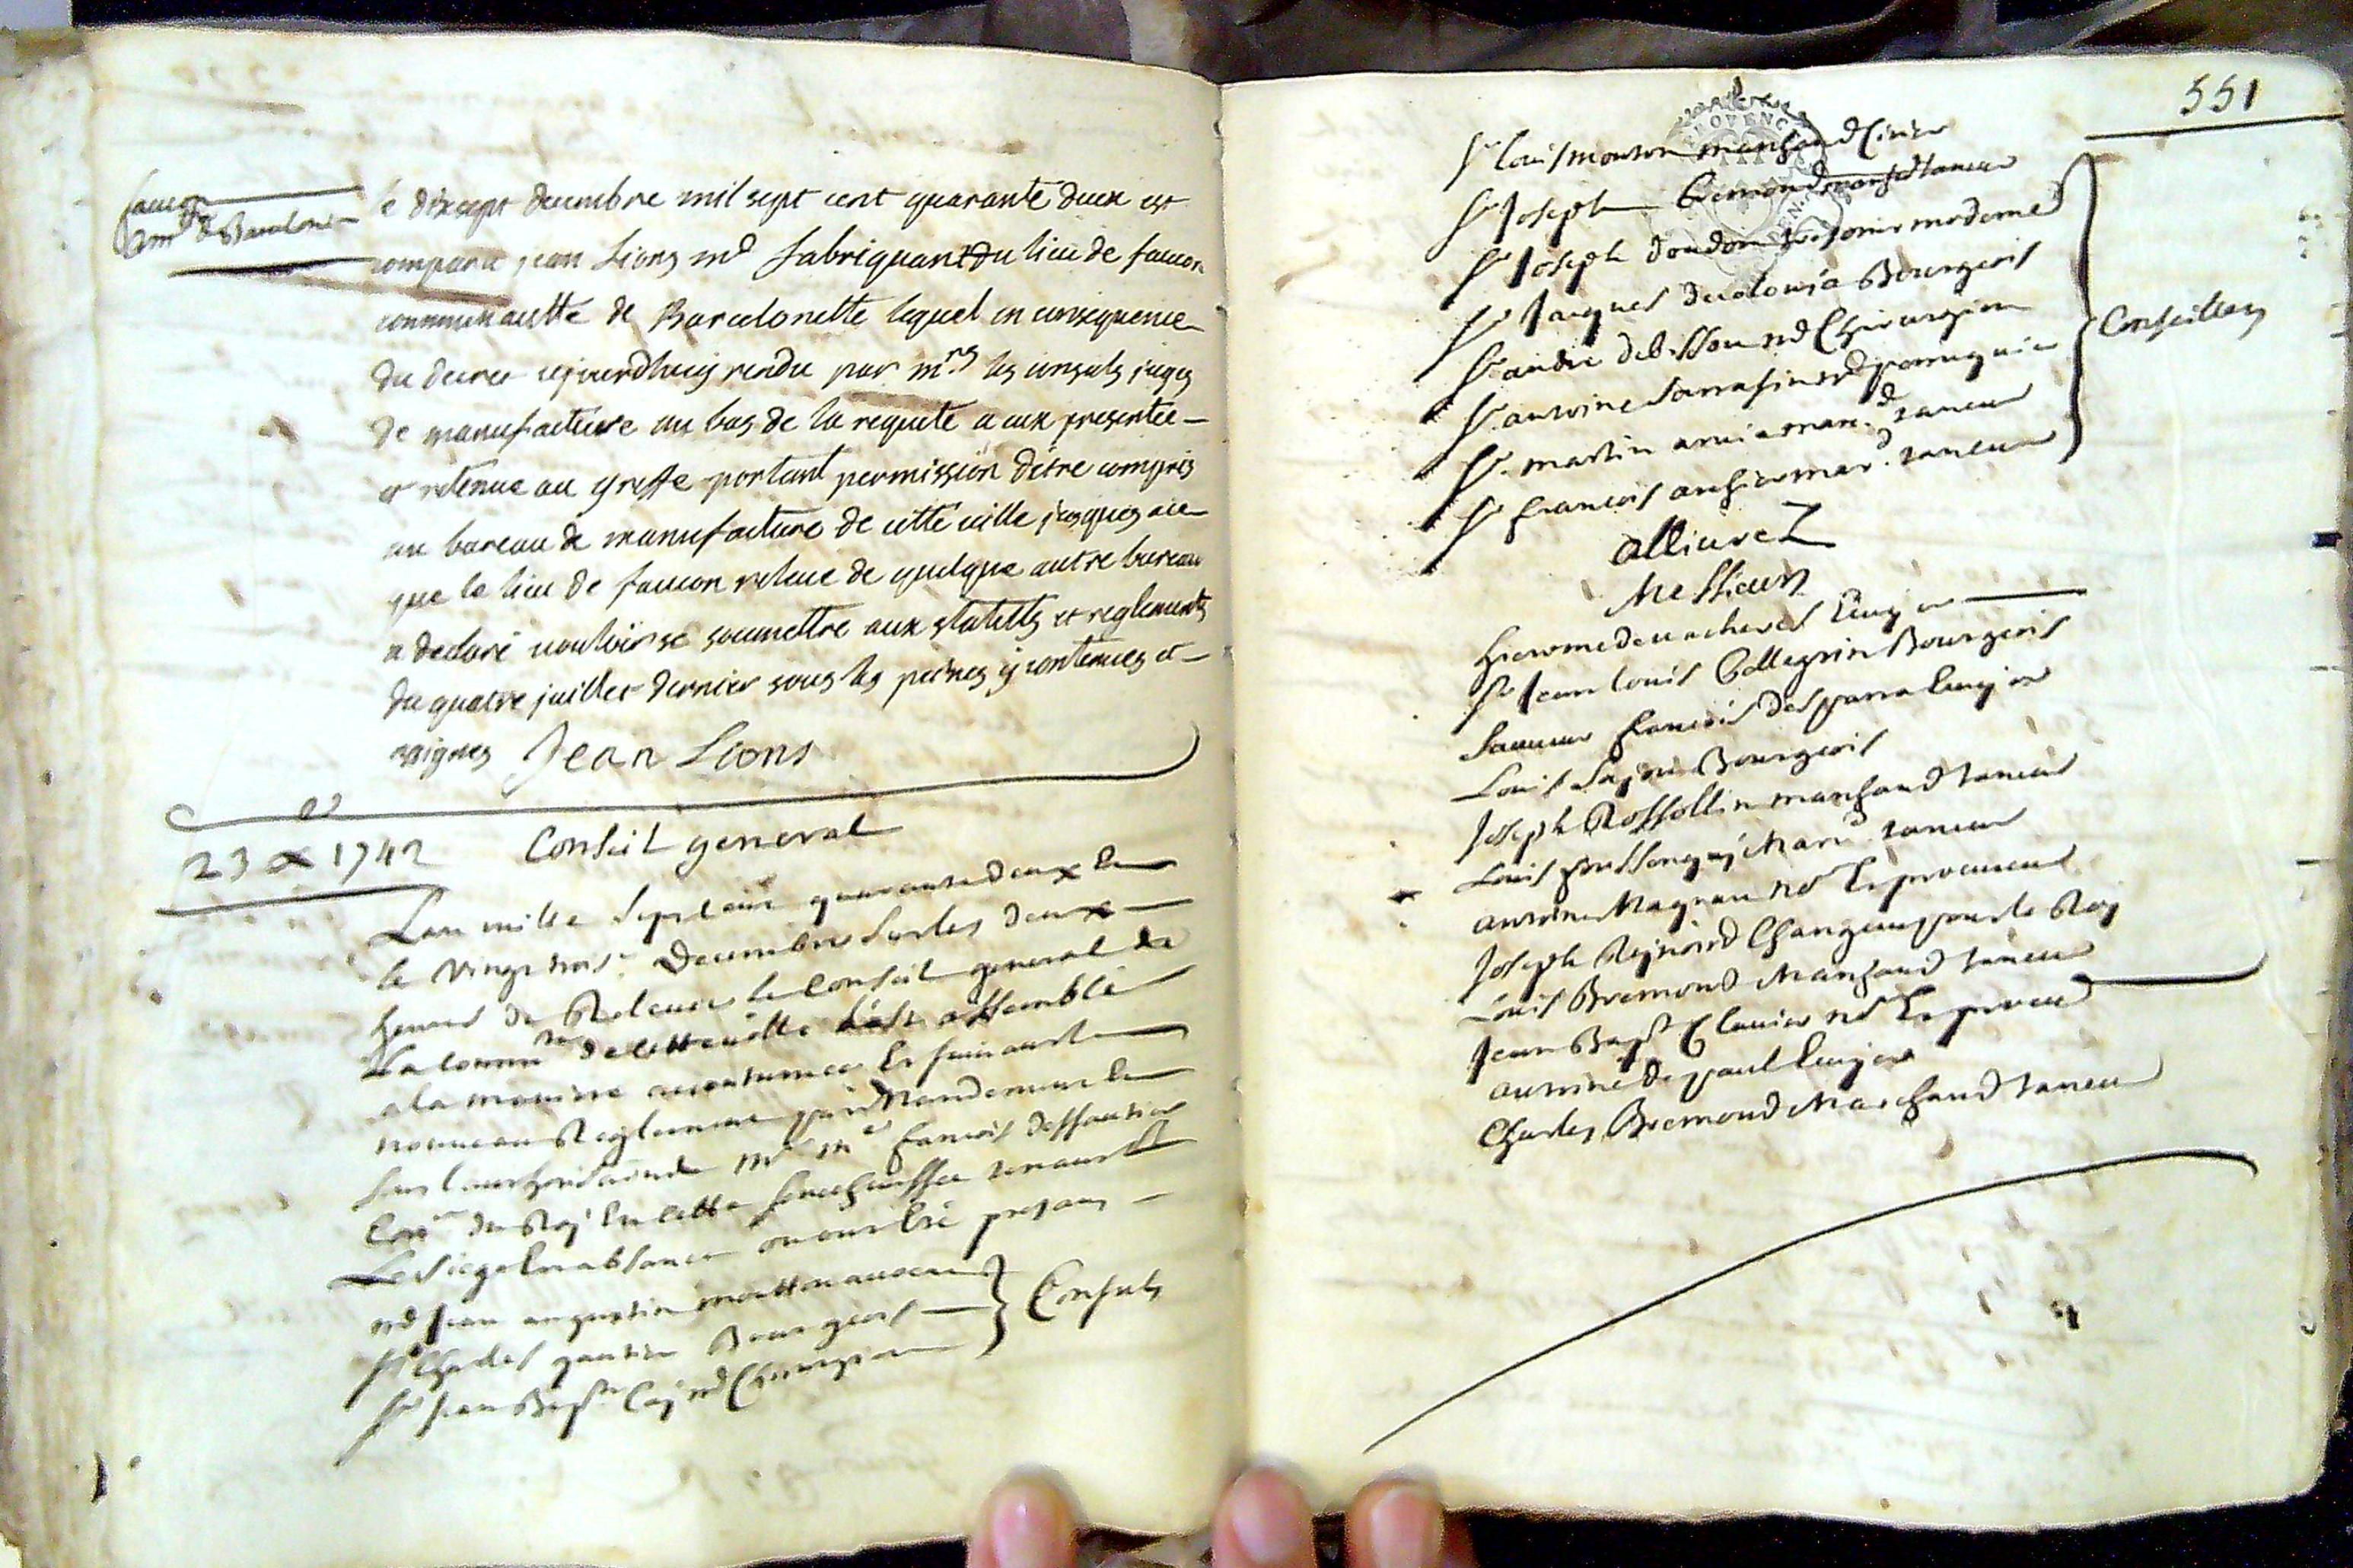 faucon
comte de Barcelonete
le dix sept decembre mil sept cent quarante deux est
comparu jean Lions md fabriquant du lieu de faucon
communautté de Barcelonette lequel en consequence
du decret cejourdhuy rendu par mrs les consuls juges
de manufacture au bas de la requete a eux presentée
et retenue au greffe portant permission detre compris
au bureau de manufacture de cette ville jusques a ce
que le lieu de faucon releve de quelque autre bureau
a declaré vouloir se soumettre aux statutts et reglements
du quatre juillet dernier sous les peines y contenues et
a signes Jean Lions
23 Xe 1742 Conseil general
Lan mille sept cent quarante deux et
le vingt trois decembre sur les deux
heures de Relevee le Conseil general de
La commte de cette ville sest assemblé
a la maniere accoutumee Et suivant le
nouveau Reglement par Mandement et
sous lauthorisation de Mr me francois
Conr du Roy En cette senechaussee tenant
Le siege En absence ou ont Eté presans
me Jean augustin moutton avocat
sr Charles gautier Bourgeois
sr Jean Bapte me Chirurgien
Consuls
551
sr Louis mouton marchand Cirier
sr Joseph Bremond marchd taneur
sr Joseph doudon tresorier moderne
sr Jacques decolonia Bourgeois
sr andré me Chirurgien
sr antoine sarrasin me perruquier
sr martin marcd taneur
sr francois marcd taneur
Conseillers
allivrez
Messieurs
Hierome devacheres Ecuyer
sr Jean Louis Pellegrin Bourgeois
francois desparra Ecuyer
Louis Bourgeois
Joseph Rossollin marchand taneur
Louis Marcd taneur
antoine Magnan nore Et procureur
Joseph Reynard Changeur pour le Roy
Louis Bremond Marchand taneur
Jean Bapte Clavier nore Et procur
antoine de paul Ecuyer
Charles Bremond Marchand taneur